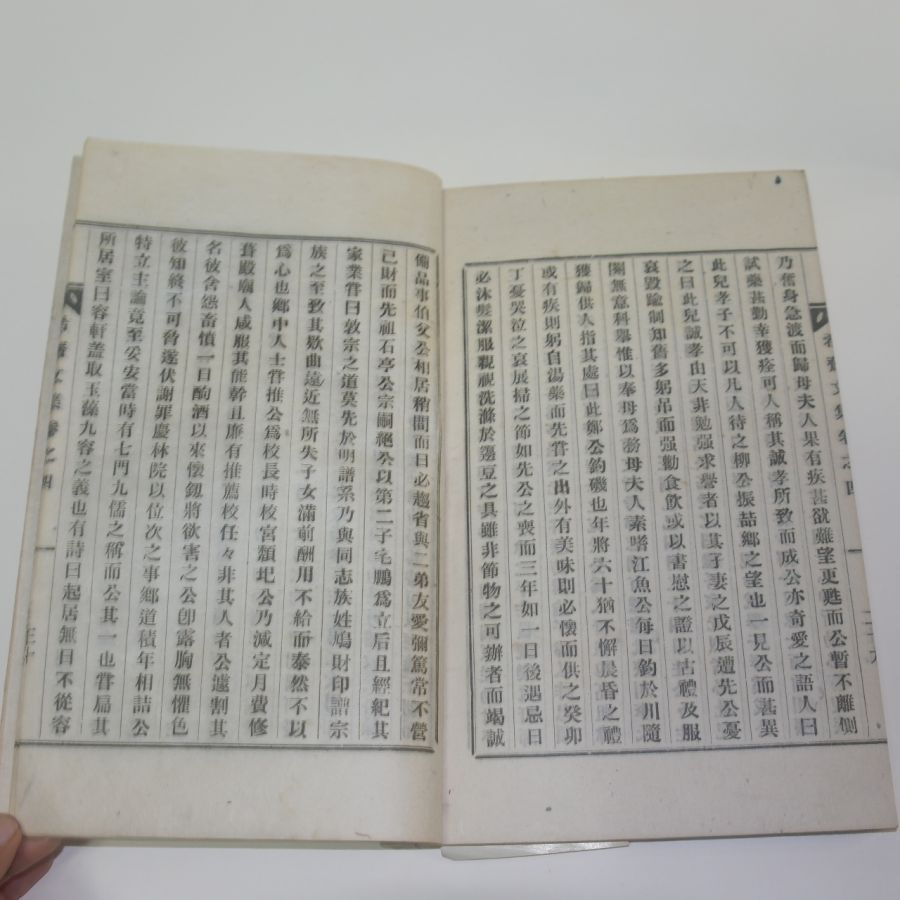 乃奮身急渡而歸母夫人果有疾甚欲難望更甦而公暫不離側
試藥甚勤幸獲痊可人稱其誠孝所致而成公亦奇愛之語人曰
此兒孝子不可以凡人待之柳公振喆鄉之望也一見公而甚異
之曰此兒誠孝由天非勉强求譽者以其子妻之戊辰遭先公憂
哀毀踰制知舊多躬吊而强勸食飮或以書慰之證以古禮及服
闋無意科擧惟以奉母爲務母夫人素嗜江魚公每日釣於川隨
獲歸供人指其處曰此鄭公釣磯也年將六十猶不懈晨昏之禮
或有疾則躬自湯藥而先甞之出外有美味則必懷而供之癸卯
丁憂哭泣之哀展掃之節如先公之喪而三年如一日後遇忌日
必沐髮潔服親視洗滌於籩豆之具雖非節物之可辦者而竭誠
文集卷之四
備品事伯父公相居稍間而日必趨省與二弟友愛彌篤常不營
己財而先祖石亭公宗嗣絕公以第二子宅鵬爲立后且經紀其
家業甞曰敦宗之道莫先於明譜系乃與同志族姓鳩財印譜宗
族之至致其歡曲遠近無所失子女滿前酬用不給而泰然不以
爲心也鄉中人士甞推公爲校長時校宮類圮公乃減定月費修
葺殿廟人咸服其能幹且廉有推薦校任々非其人者公遽割其
名彼含怨畜憤一日酗酒以來懷釰將欲害之公卽露胸無懼色
彼知終不可脅遂伏謝罪慶林院以位次之事鄉道積年相詰公
特立主論竟至妥安當時有七門九儒之稱而公其一也甞扁其
所居室曰容軒盖取玉藻九容之義也有詩曰起居無日不從容
文集卷之四
三十